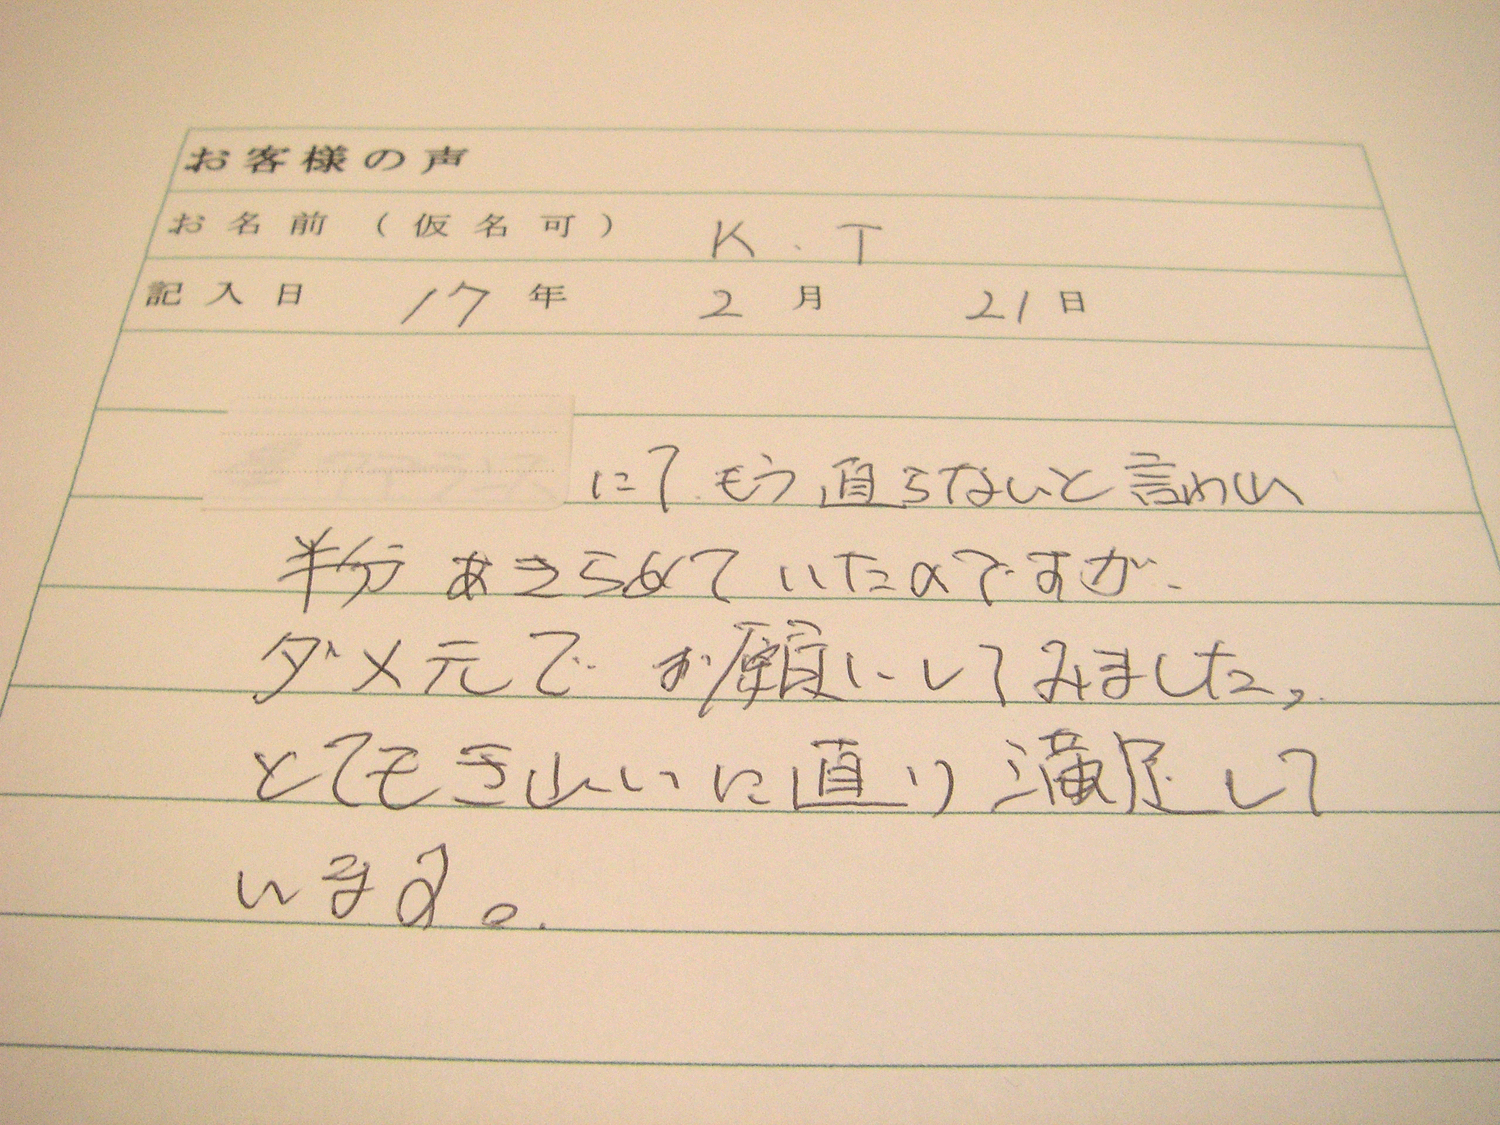 お客様の声
お名前(仮名可) K.T
記入日 17年 2月 21日
にてもう直らないと言われ
半分あきらめていたのですが、
ダメ元でお願いしてみました。
とてもきれいに直り満足して
います。